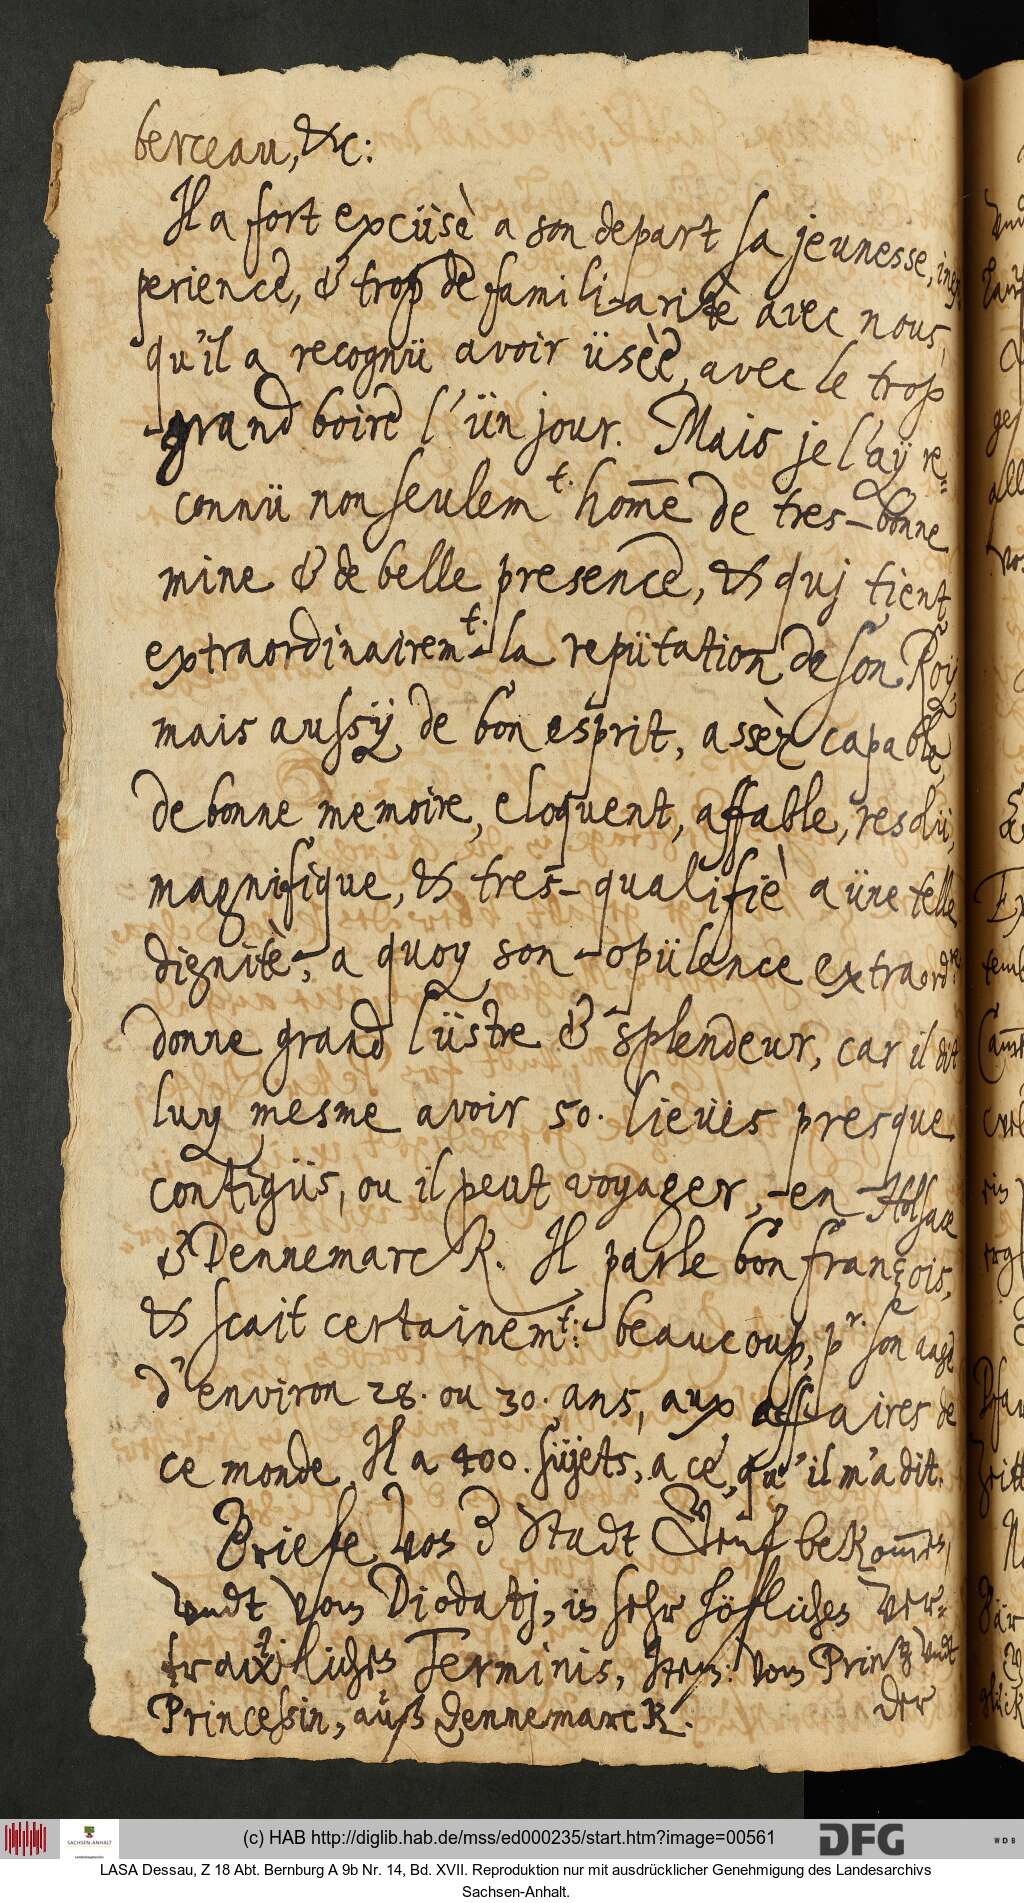 berceau, &c:
Il a fort excüsè a son depart sa jeunesse, inex¬
perience, & trop de famili-aritè avec nous,
qu'il a recognü avoir üsèe, avec le trop
grand boire l'ün jour. Mais je l'aÿ re¬
connü non seulem.t hom̅e de tres-bonne
mine & de belle presence, & quj tient
extraordinairem.t la repütation de son Roy,
mais aussÿ de bon esprit, assèz capable,
de bonne memoire, eloquent, affable, resolü,
magnifique, & tres-qualifiè a üne telle
dignitè, a quoy son opülence extraord.re
donne grand lüstre & splendeur, car il dit
luy mesme avoir 50. lieües presque
contigüs, ou il peut voyager, en Holsace
& Dennemarck. Il parle bon françois,
& scait certainem.t beaucoup, p.r son aage
d'environ 28. ou 30. ans, aux affaires de
ce monde. Il a 400. süjets, a ce, qu'il m'a dit.
Briefe von der Stadt Genf bekom̅en,
vndt vom Diodatj, in sehr höflichen ver-
traẅlichen Terminis, Item: vom Printz vndt
Princeßin, auß Dennemarck.
der
(c) HAB http://diglib.hab.de/mss/ed000235/start.htm?image=00561
SACHSEN-ANHALT
DFG
WDB
LASA Dessau, Z 18 Abt. Bernburg A 9b Nr. 14, Bd. XVII. Reproduktion nur mit ausdrücklicher Genehmigung des Landesarchivs
Sachsen-Anhalt.